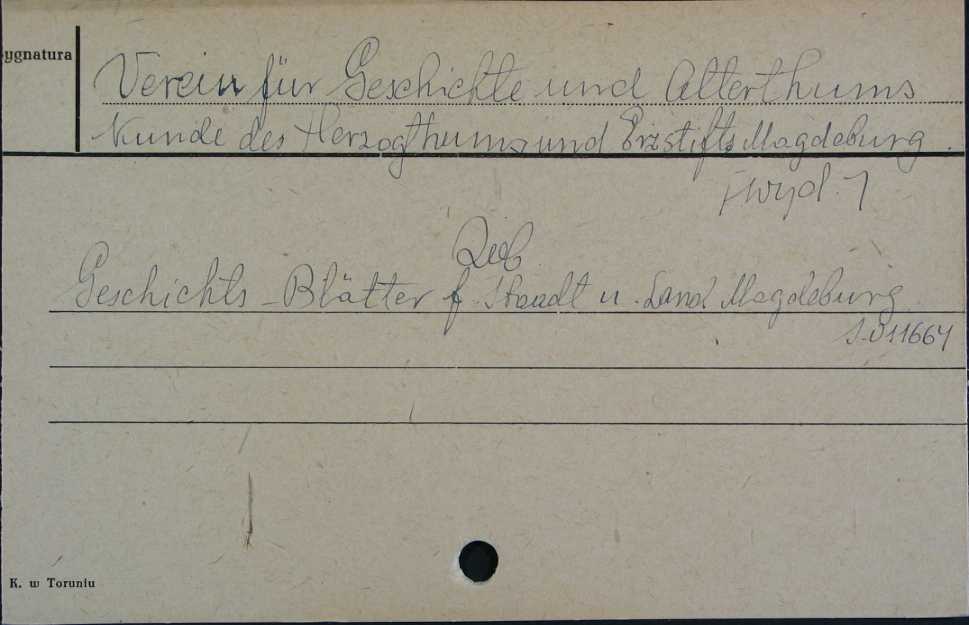 ygnatura
Verein für Geschichte und Alterthums
Kunde des Herzogthums und Erzstifts Magdeburg.
[wyd.]
Geschichts-Blätter f. Staadt u. Land Magdeburg
J.011664
K. w Toruniu